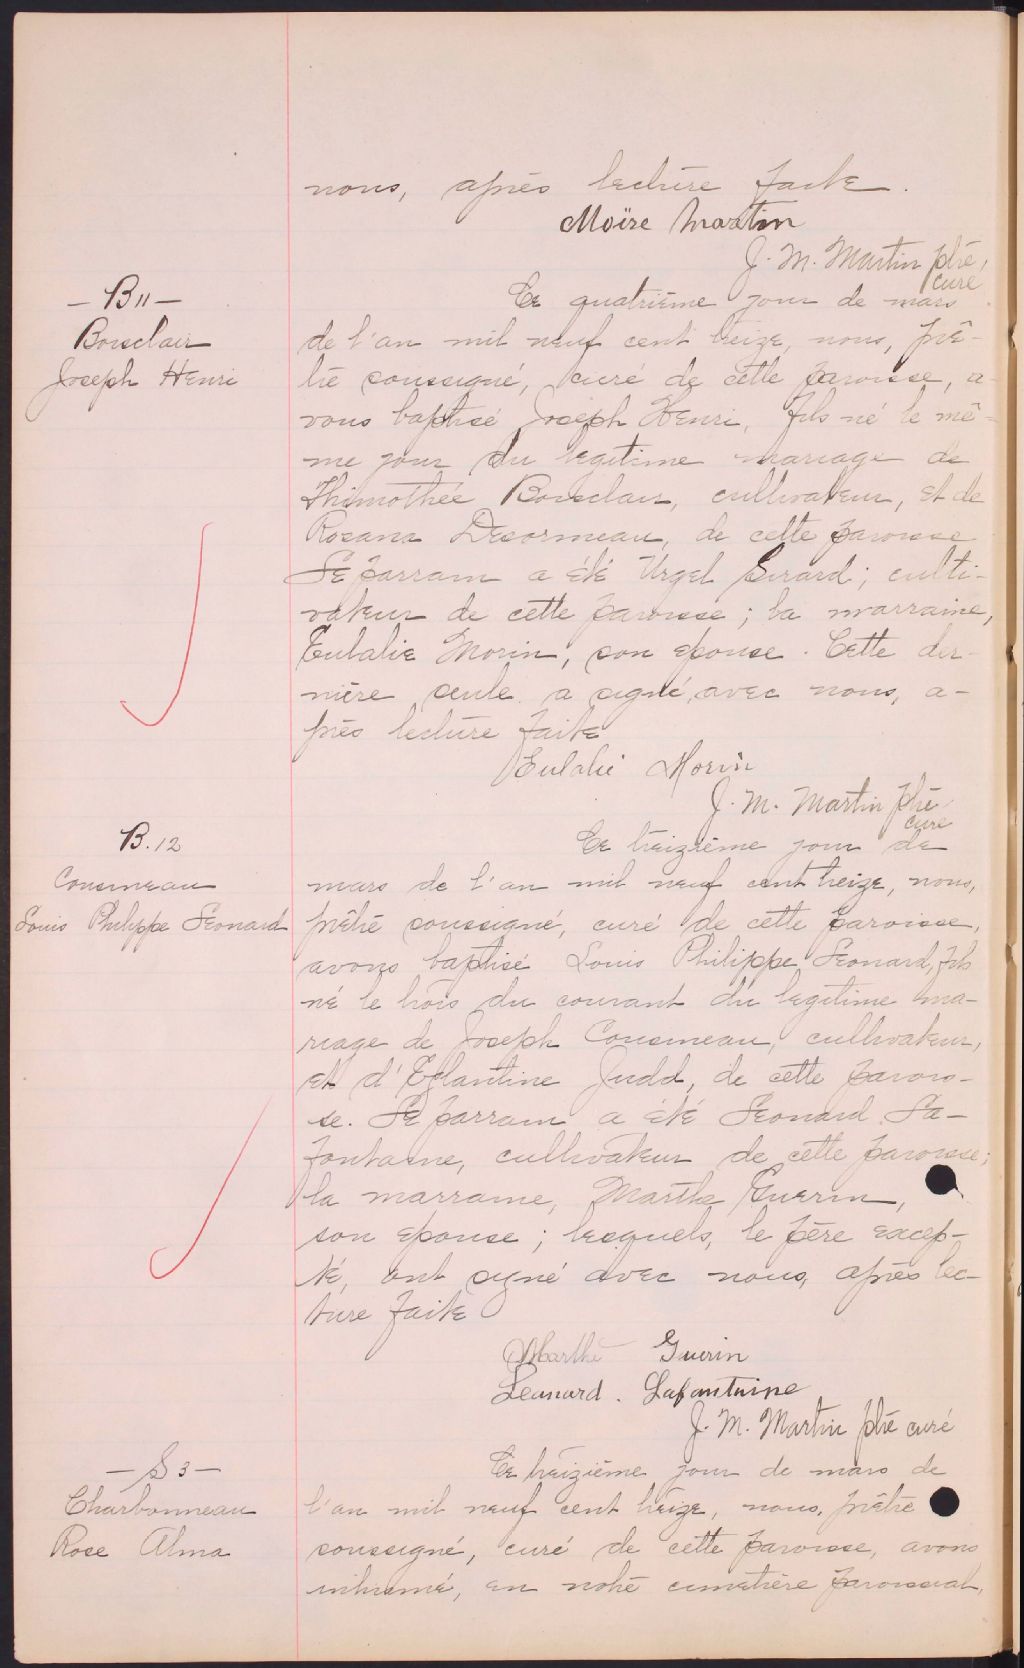 nous, après lecture faite.
Moïse Martin
J. M. Martin ptre,
curé
— B 11 —
Boisclair
Joseph Henri
Ce quatrième jour de mars
de l'an mil neuf cent treize, nous, prê-
tre soussigné, curé de cette paroisse, a-
vons baptisé Joseph Henri, fils né le mê-
me jour du légitime mariage de
Thimothée Boisclair, cultivateur, et de
Rosana Desormeau, de cette paroisse
Le parrain a été Urgel Sirard; culti-
vateur de cette paroisse; la marraine,
Eulalie Morin, son épouse. Cette der-
nière seule a signé, avec nous, a-
près lecture faite
Eulalie Morin
J. M. Martin ptre
curé
B. 12
Cousineau
Louis Philippe Leonard
Ce treizième jour de
mars de l'an mil neuf cent treize, nous,
prêtre soussigné, curé de cette paroisse,
avons baptisé Louis Philippe Leonard, fils
né le trois du courant du légitime ma-
riage de Joseph Cousineau, cultivateur,
et d'Eglantine Judd, de cette parois-
se. Le parrain a été Leonard La-
fontaine, cultivateur de cette paroisse;
la marraine, Marthe Guerin,
son épouse; lesquels, le père excep-
té, ont signé avec nous, après lec-
ture faite
Marthe Guerin
Leonard. Lafontaine
J. M. Martin ptre curé
— S 3 —
Charbonneau
Rose Alma
Ce treizième jour de mars de
l'an mil neuf cent treize, nous, prêtre
soussigné, curé de cette paroisse, avons
inhumé, en notre cimetière paroissial,